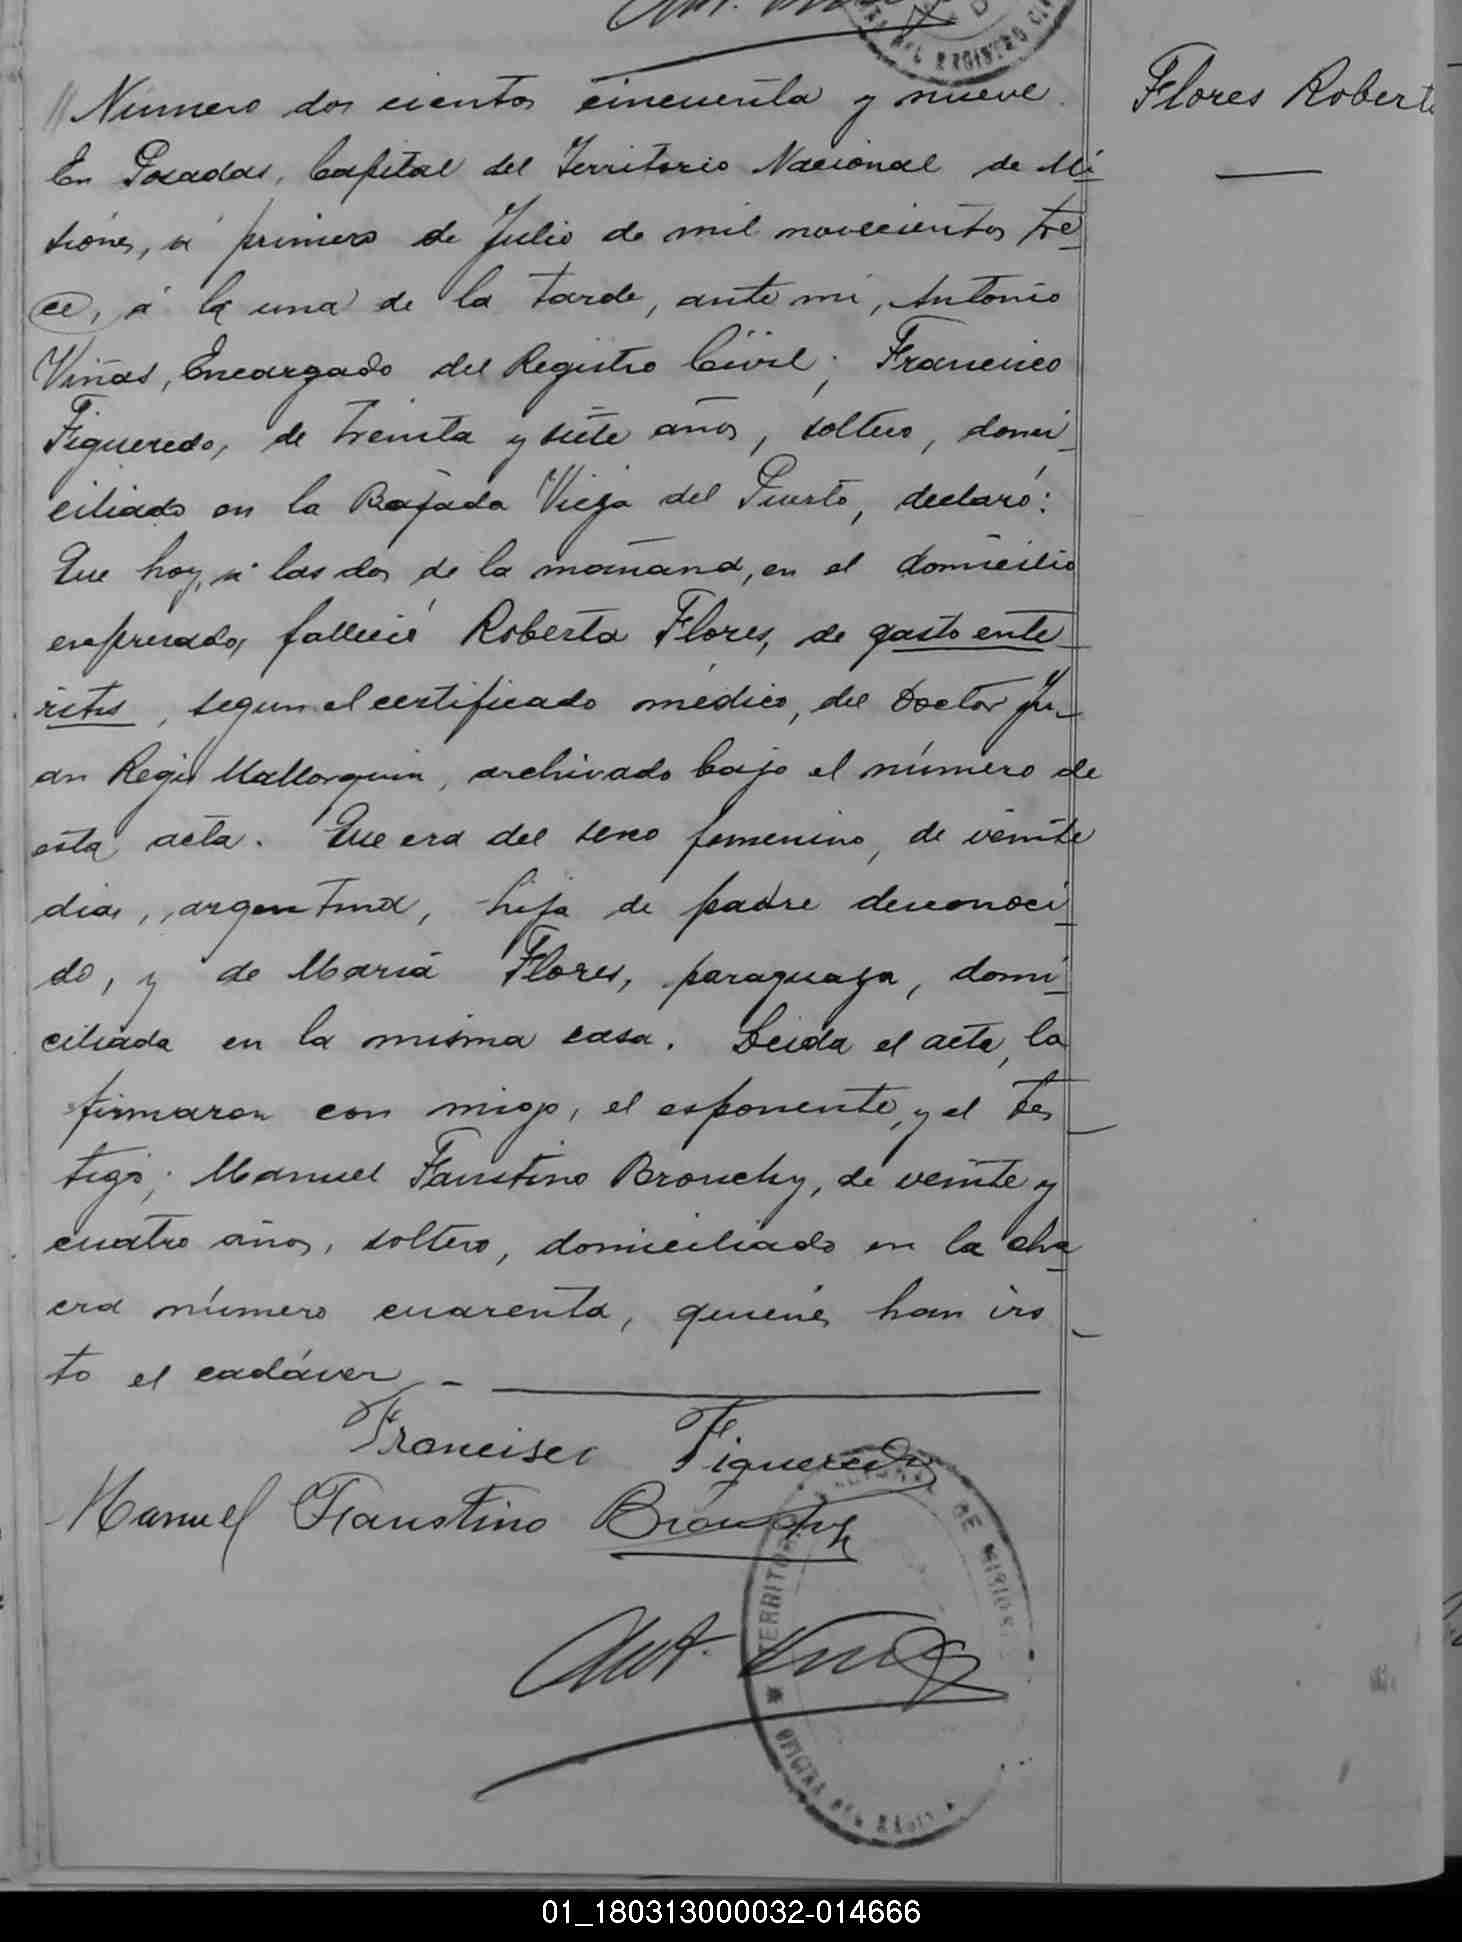 Flores Robert
Número dos cientos cincuenta y nueve
En Posadas, Capital del Territorio Nacional de Mi
siones, á primero de Julio de mil novecientos tre
ce, á la una de la tarde, ante mí, Antonio
Viñas, Encargado del Registro Civil; Francisco
Figueredo, de treinta y siete años, soltero, domi
ciliado en la Bajada Vieja del Puerto, declaró:
Que hoy, á las dos de la mañana, en el domicilio
expresado, falleció Roberta Flores, de gasto ente
ritis, segun el certificado médico, del Doctor Ju
an Regis Mallorquin, archivado bajo el número de
esta acta. Que era del sexo femenino, de veinte
dias, argentina, hija de padre desconoci
do, y de María Flores, paraguaya, domi
ciliada en la misma casa. Leida el acta, la
firmaron con migo, el esponente, y el tes
tigo; Manuel Faustino Brouchy, de veinte y
cuatro años, soltero, domiciliado en la cha
cra número cuarenta, quienes han vis
to el cadáver. -
Francisco Figueredo
Manuel Faustino Brouchy
Ant. Viñas
TERRITORIO DE MISIONES
OFICINA DEL REGIS
DEL REGISTRO CIV
01_180313000032-014666